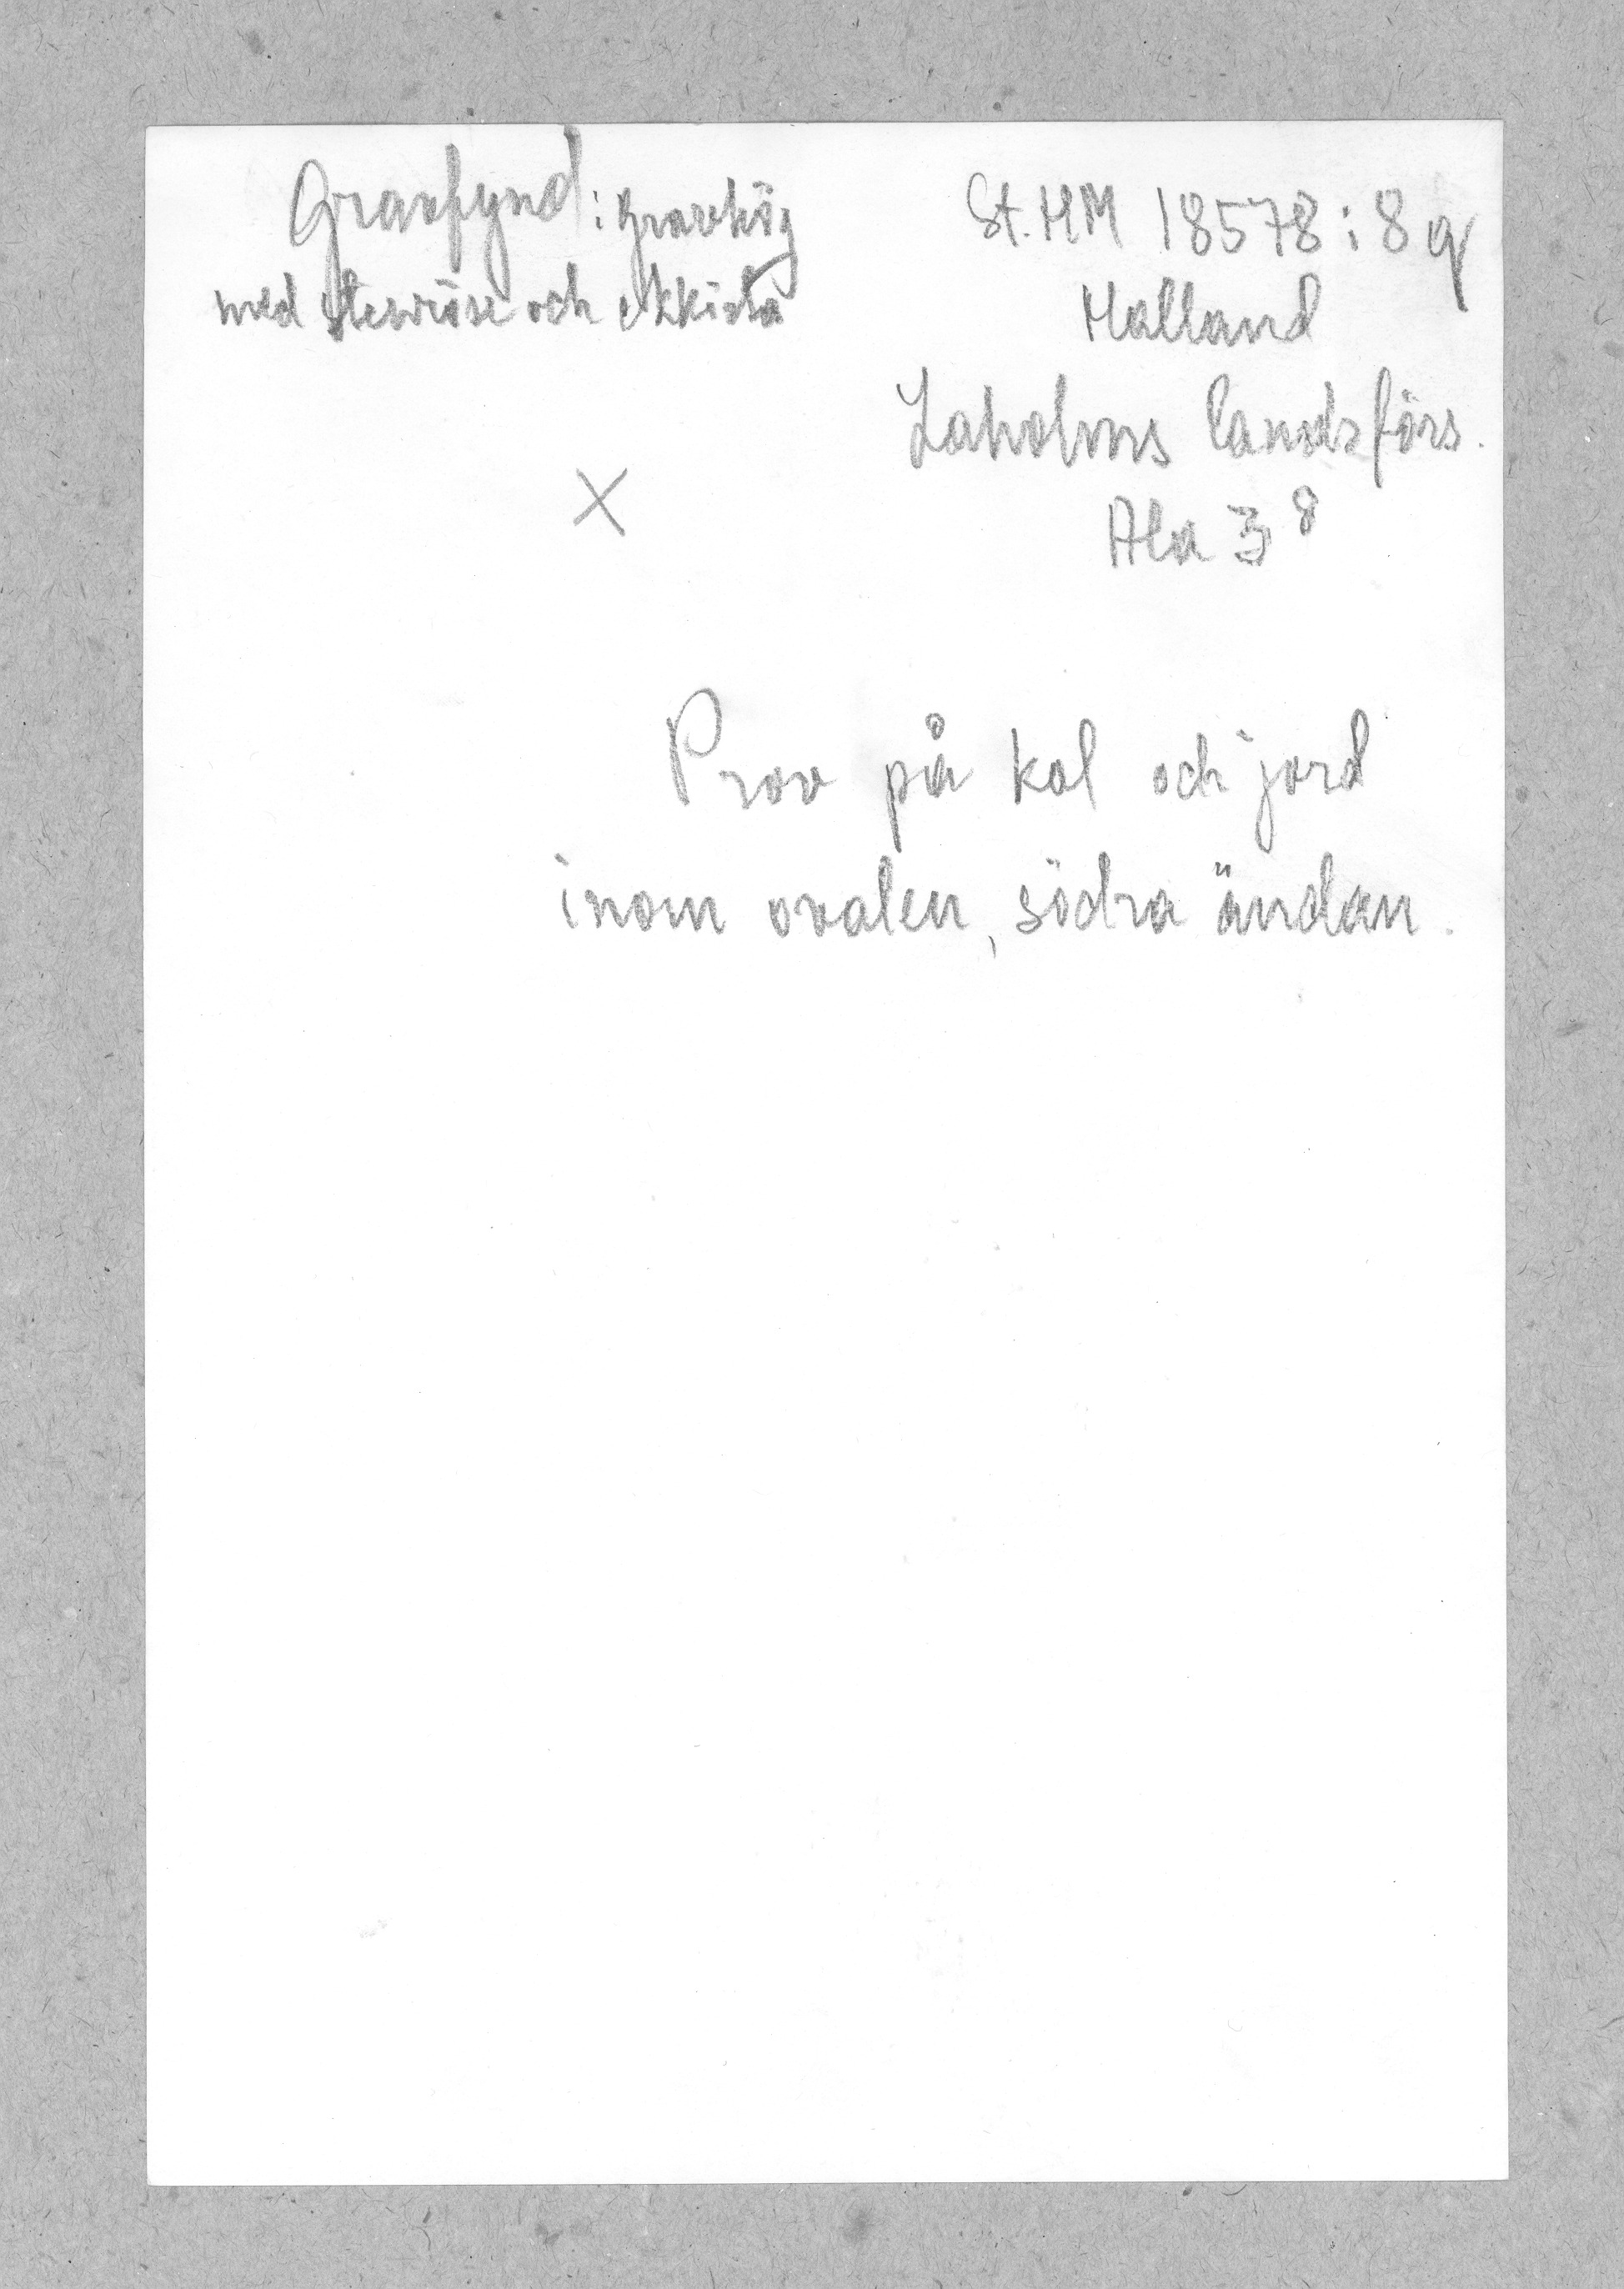 Gravfynd: gravhög
med stenröse och ekkista
St. HM 18578:8 q
Halland
Laholms landsförs.
Ala 3⁸
X
Prov på kol och jord
inom ovalen, södra ändan.